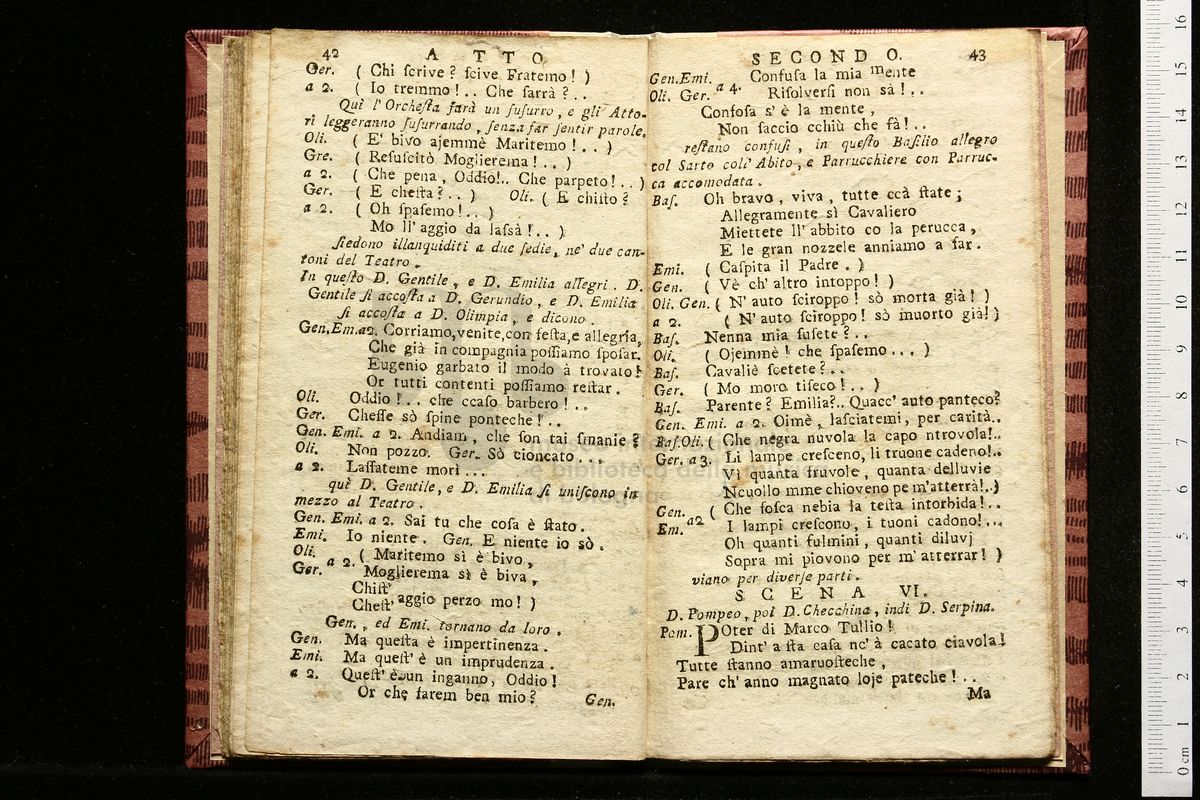 42 A T T O
Ger. ( Chi ſcrive? ſcive Fratemo! )
a 2. ( Io tremmo!.. Che ſarrà?..
Quì l'Orcheſta farà un ſuſurro, e gli Atto-
ri leggeranno ſuſurrando, ſenza far ſentir parole.
Oli. ( E' bivo ajemmè Maritemo!..)
Gre. ( Reſuſcitò Moglierema!..)
a 2. ( Che pena, Oddio!.. Che parpeto!..)
Ger. ( E cheſta?..) Oli. ( E chiſto?
a 2. ( Oh ſpaſemo!..)
Mo ll'aggio da laſsà!..)
ſiedono illanquiditi a due ſedie, ne' due can-
toni del Teatro.
In queſto D. Gentile, e D. Emilia allegri. D.
Gentile ſi accoſta a D. Gerundio, e D. Emilia
ſi accoſta a D. Olimpia, e dicono.
Gen.Em.a2. Corriamo,venite,con feſta,e allegria,
Che già in compagnia poſſiamo ſpoſar.
Eugenio garbato il modo à trovato!
Or tutti contenti poſſiamo reſtar.
Oli. Oddio!.. che ccaſo barbero!..
Ger. Cheſſe sò ſpine ponteche!..
Gen. Emi. a 2. Andiam, che ſon tai ſmanie?
Oli. Non pozzo. Ger. Sò cioncato...
a 2. Laſſateme morì...
quì D. Gentile, e D. Emilia ſi uniſcono in
mezzo al Teatro.
Gen. Emi. a 2. Sai tu che coſa è ſtato.
Emi. Io niente. Gen. E niente io sò.
Oli. a 2. ( Maritemo sì è bivo,
Ger. Moglierema sì è biva,
Chiſt'
Cheſt' aggio perzo mo! )
Gen., ed Emi. tornano da loro.
Gen. Ma queſta è impertinenza.
Emi. Ma queſt' è un imprudenza.
a 2. Queſt' è un inganno, Oddio!
Or che farem ben mio?
Gen.
SECONDO. 43
Gen.Emi. Confuſa la mia mente
Oli. Ger. a 4. Riſolverſi non sà!..
Confoſa s'è la mente,
Non ſaccio cchiù che fà!..
reſtano confuſi, in queſto Baſilio allegro
col Sarto coll' Abito, e Parrucchiere con Parruc-
ca accomodata.
Baſ. Oh bravo, viva, tutte ccà ſtate;
Allegramente sì Cavaliero
Miettete ll'abbito co la perucca,
E le gran nozzele anniamo a far.
Emi. ( Caſpita il Padre. )
Gen. ( Vè ch'altro intoppo! )
Oli. Gen. ( N'auto ſciroppo! sò morta già! )
a 2. ( N'auto ſciroppo! sò muorto già! )
Baſ. Nenna mia ſuſete?..
Oli. ( Ojemmè! che ſpaſemo... )
Baſ. Cavaliè ſcetete?..
Ger. ( Mo moro tiſeco!..)
Baſ. Parente? Emilia?.. Quacc'auto panteco?
Gen. Emi. a 2. Oimè, laſciatemi, per carità..
Baſ.Oli. ( Che negra nuvola la capo ntrovola!..
Ger. a 3. Li lampe creſceno, li truone cadeno!..
Vi quanta fruvole, quanta delluvie
Ncuollo mme chioveno pe m'atterrà!..)
Gen. ( Che foſca nebia la teſta intorbida!..
Em. a2 I lampi creſcono, i tuoni cadono!...
Oh quanti fulmini, quanti diluvj
Sopra mi piovono per m'atterrar! )
viano per diverſe parti.
SCENA VI.
D. Pompeo, poi D. Checchina, indi D. Serpina.
Pom. POter di Marco Tullio!
Dint' a ſta caſa nc'à cacato ciavola!
Tutte ſtanno amaruoſteche,
Pare ch'anno magnato loje pateche!..
Ma
0 cm 1 2 3 4 5 6 7 8 9 10 11 12 13 14 15 16